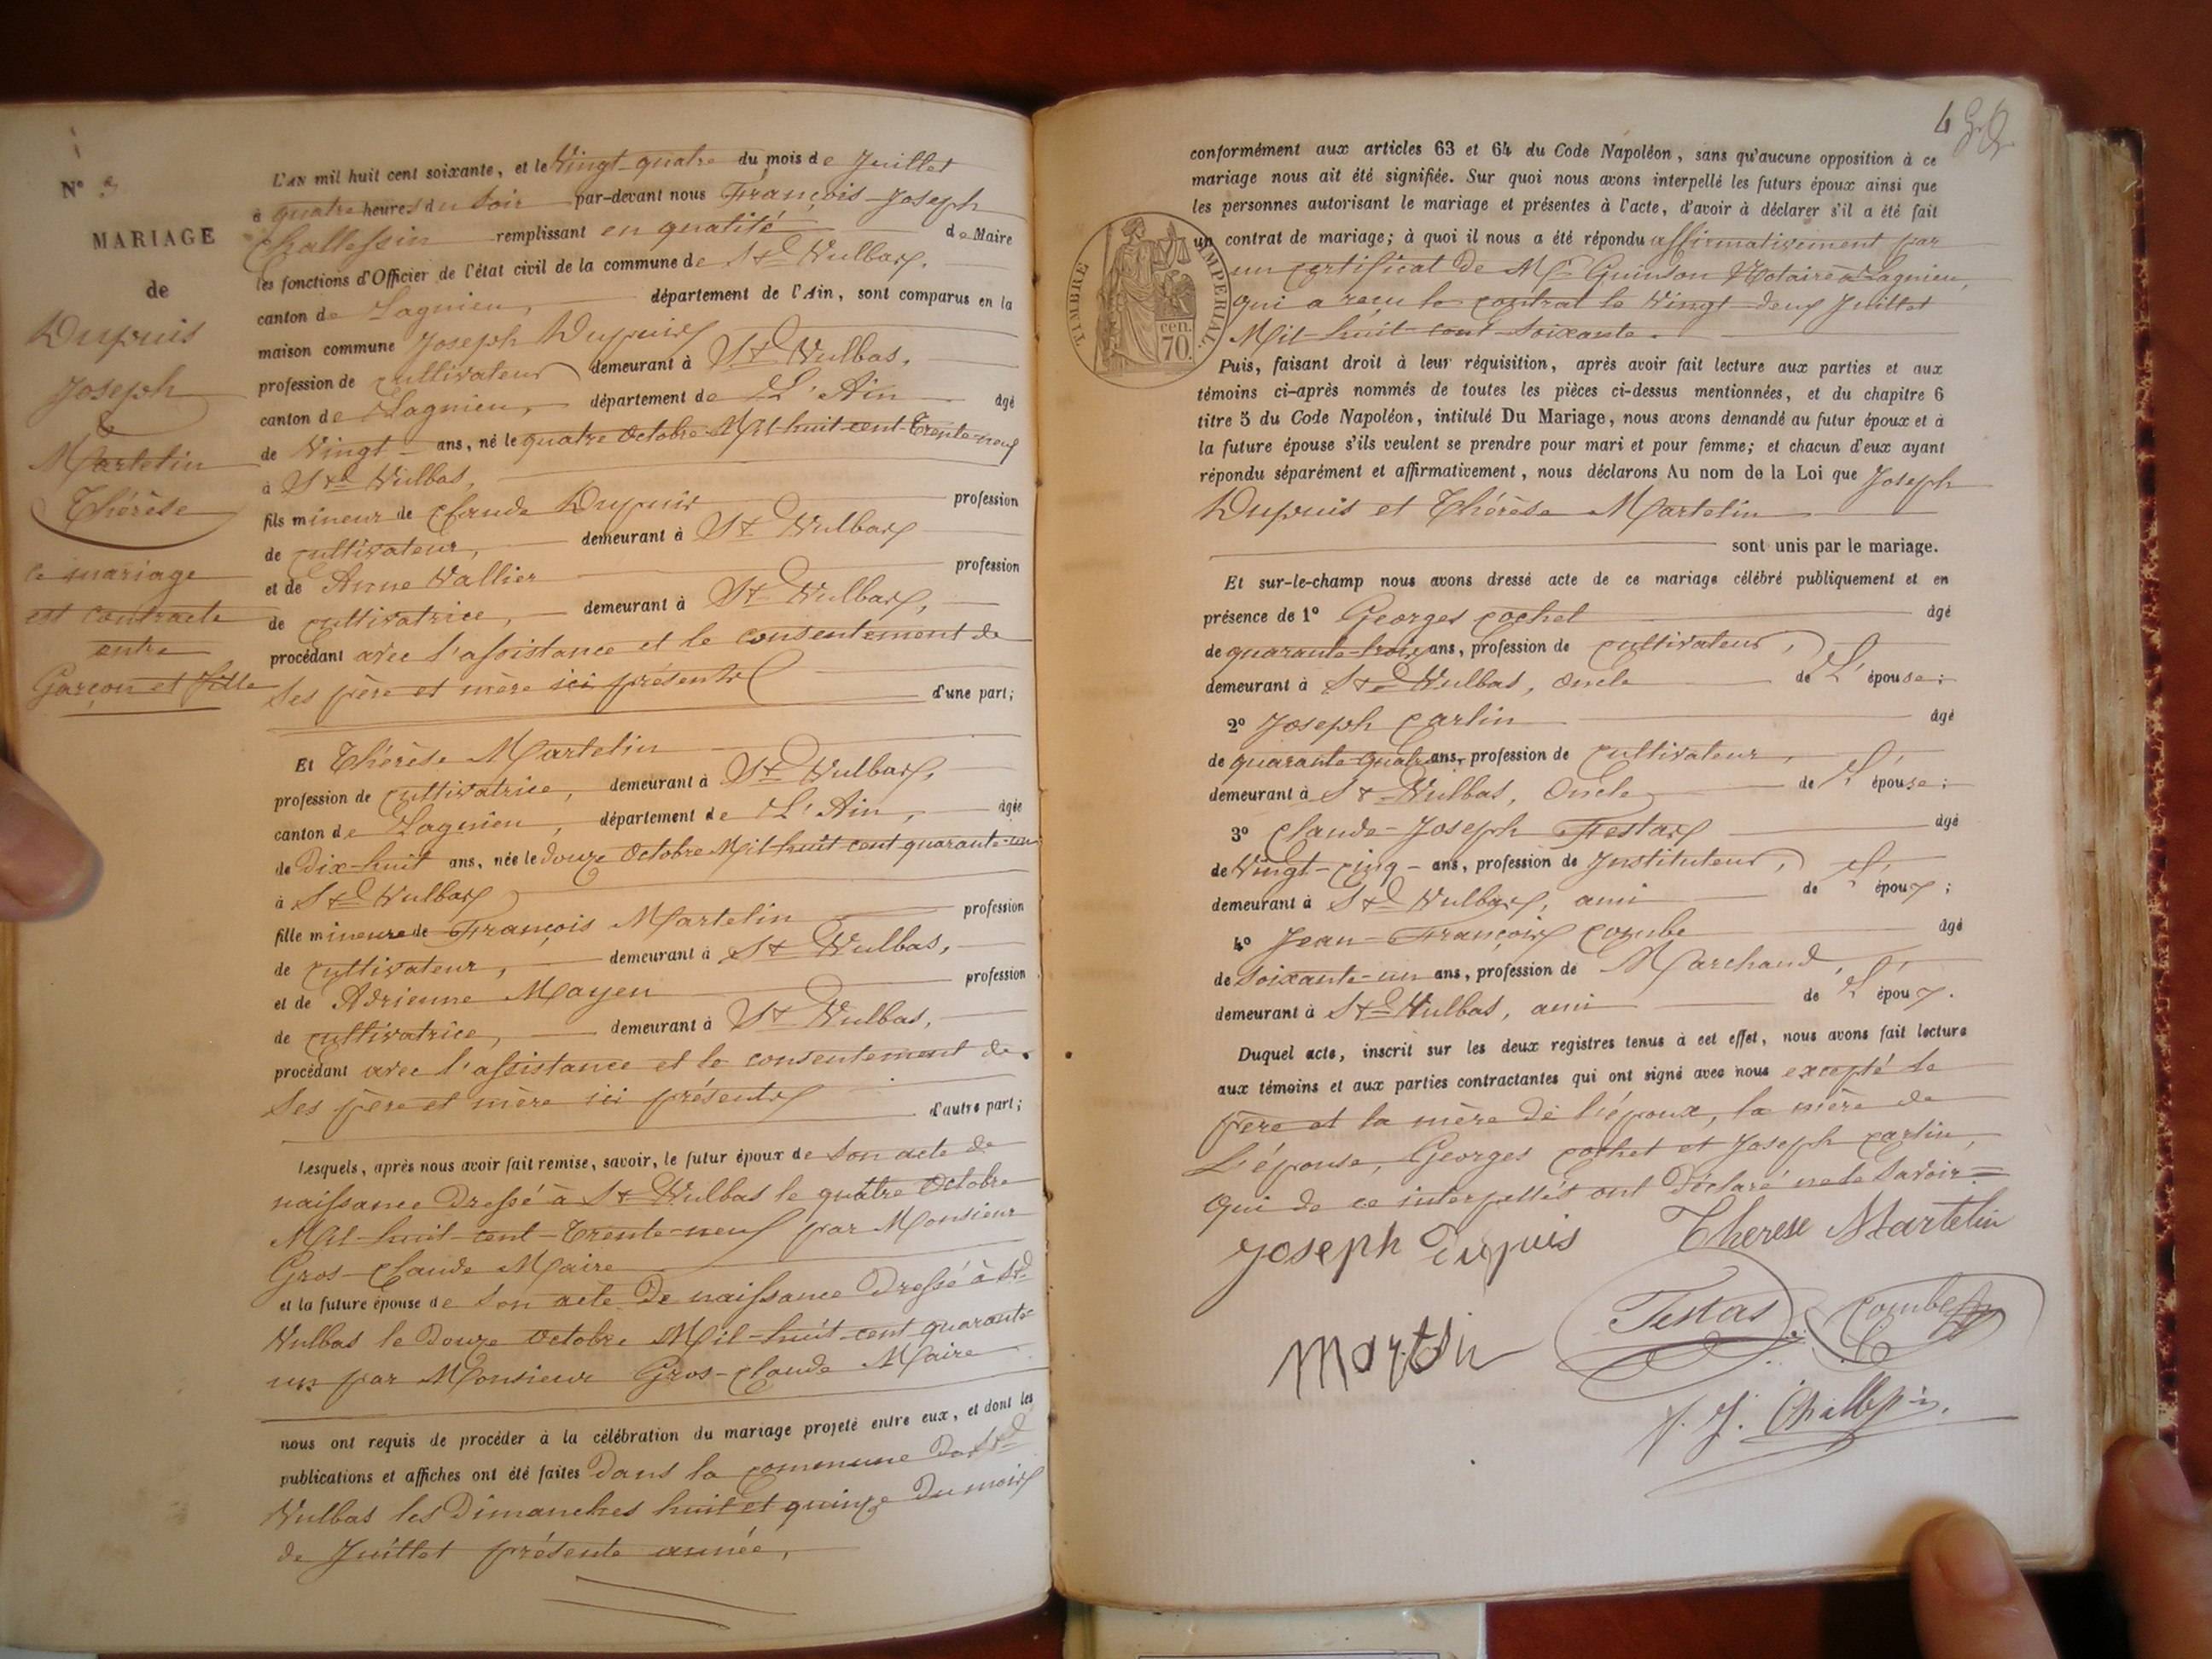 N° 3
MARIAGE
de
Dupuis
Joseph
&
Martelin
Thérèse
le mariage
est contracté
entre
Garçon et fille
L'AN mil huit cent soixante, et le Vingt-quatre du mois de Juillet
à quatre heures du soir par-devant nous François-Joseph
Challessin remplissant en qualité de Maire
les fonctions d'Officier de l'état civil de la commune de St Vulbas,
canton de Lagnieu, département de l'Ain, sont comparus en la
maison commune Joseph Dupuis
profession de cultivateur demeurant à St Vulbas,
canton de Lagnieu, département de L'Ain âgé
de Vingt ans, né le quatre Octobre Mil-huit-cent-Trente-neuf
à St Vulbas,
fils mineur de Claude Dupuis profession
de cultivateur, demeurant à St Vulbas
et de Anne Vallier profession
de cultivatrice, demeurant à St Vulbas,
procédant avec l'assistance et le consentement de
Ses père et mère ici présents d'une part;
Et Thérèse Martelin
profession de cultivatrice, demeurant à St Vulbas,
canton de Lagnieu, département de L'Ain, âgée
de Dix-huit ans, née le douze Octobre Mil-huit-cent-quarante-un
à St Vulbas
fille mineure de François Martelin profession
de cultivateur, demeurant à St Vulbas,
et de Adrienne Mayen profession
de cultivatrice, demeurant à St Vulbas,
procédant avec l'assistance et le consentement de
Ses père et mère ici présents d'autre part;
Lesquels, après nous avoir fait remise, savoir, le futur époux de Son acte de
naissance Dressé à St Vulbas le quatre Octobre
Mil-huit-cent-Trente-neuf par Monsieur
Gros-Claude Maire
et la future épouse de Son acte De naissance Dressé à St
Vulbas le Douze Octobre Mil-huit-cent quarante
un par Monsieur Gros-Claude Maire
nous ont requis de procéder à la célébration du mariage projeté entre eux, et dont les
publications et affiches ont été faites Dans la commune De St
Vulbas les Dimanches huit et quinze Du mois
de Juillet présente année,
4
conformément aux articles 63 et 64 du Code Napoléon, sans qu'aucune opposition à ce
mariage nous ait été signifiée. Sur quoi nous avons interpellé les futurs époux ainsi que
les personnes autorisant le mariage et présentes à l'acte, d'avoir à déclarer s'il a été fait
un contrat de mariage; à quoi il nous a été répondu affirmativement par
un certificat de Me Guinson Notaire à Lagnieu,
qui a reçu le contrat le Vingt-deux Juillet
Mil-huit-cent-Soixante.
TIMBRE IMPERIAL
70 cen.
Puis, faisant droit à leur réquisition, après avoir fait lecture aux parties et aux
témoins ci-après nommés de toutes les pièces ci-dessus mentionnées, et du chapitre 6
titre 5 du Code Napoléon, intitulé Du Mariage, nous avons demandé au futur époux et à
la future épouse s'ils veulent se prendre pour mari et pour femme; et chacun d'eux ayant
répondu séparément et affirmativement, nous déclarons Au nom de la Loi que Joseph
Dupuis et Thérèse Martelin
sont unis par le mariage.
Et sur-le-champ nous avons dressé acte de ce mariage célébré publiquement et en
présence de 1° Georges Cochet âgé
de quarante-trois ans, profession de cultivateur,
demeurant à St Vulbas, Oncle de L'épouse;
2° Joseph Carlin âgé
de quarante quatre ans, profession de cultivateur,
demeurant à St Vulbas, Oncle de L'épouse;
3° Claude-Joseph Testas âgé
de Vingt-cinq ans, profession de Instituteur,
demeurant à St Vulbas, ami de L'époux;
4° Jean-François Combe âgé
de Soixante-un ans, profession de Marchand,
demeurant à St Vulbas, ami de L'époux.
Duquel acte, inscrit sur les deux registres tenus à cet effet, nous avons fait lecture
aux témoins et aux parties contractantes qui ont signé avec nous excepté le
père et la mère de l'époux, la mère de
L'épouse, Georges Cochet et Joseph Carlin,
qui de ce interpellés ont Déclaré ne le Savoir
Joseph Dupuis Therese Martelin
Testas Combe
F. J. Challessin